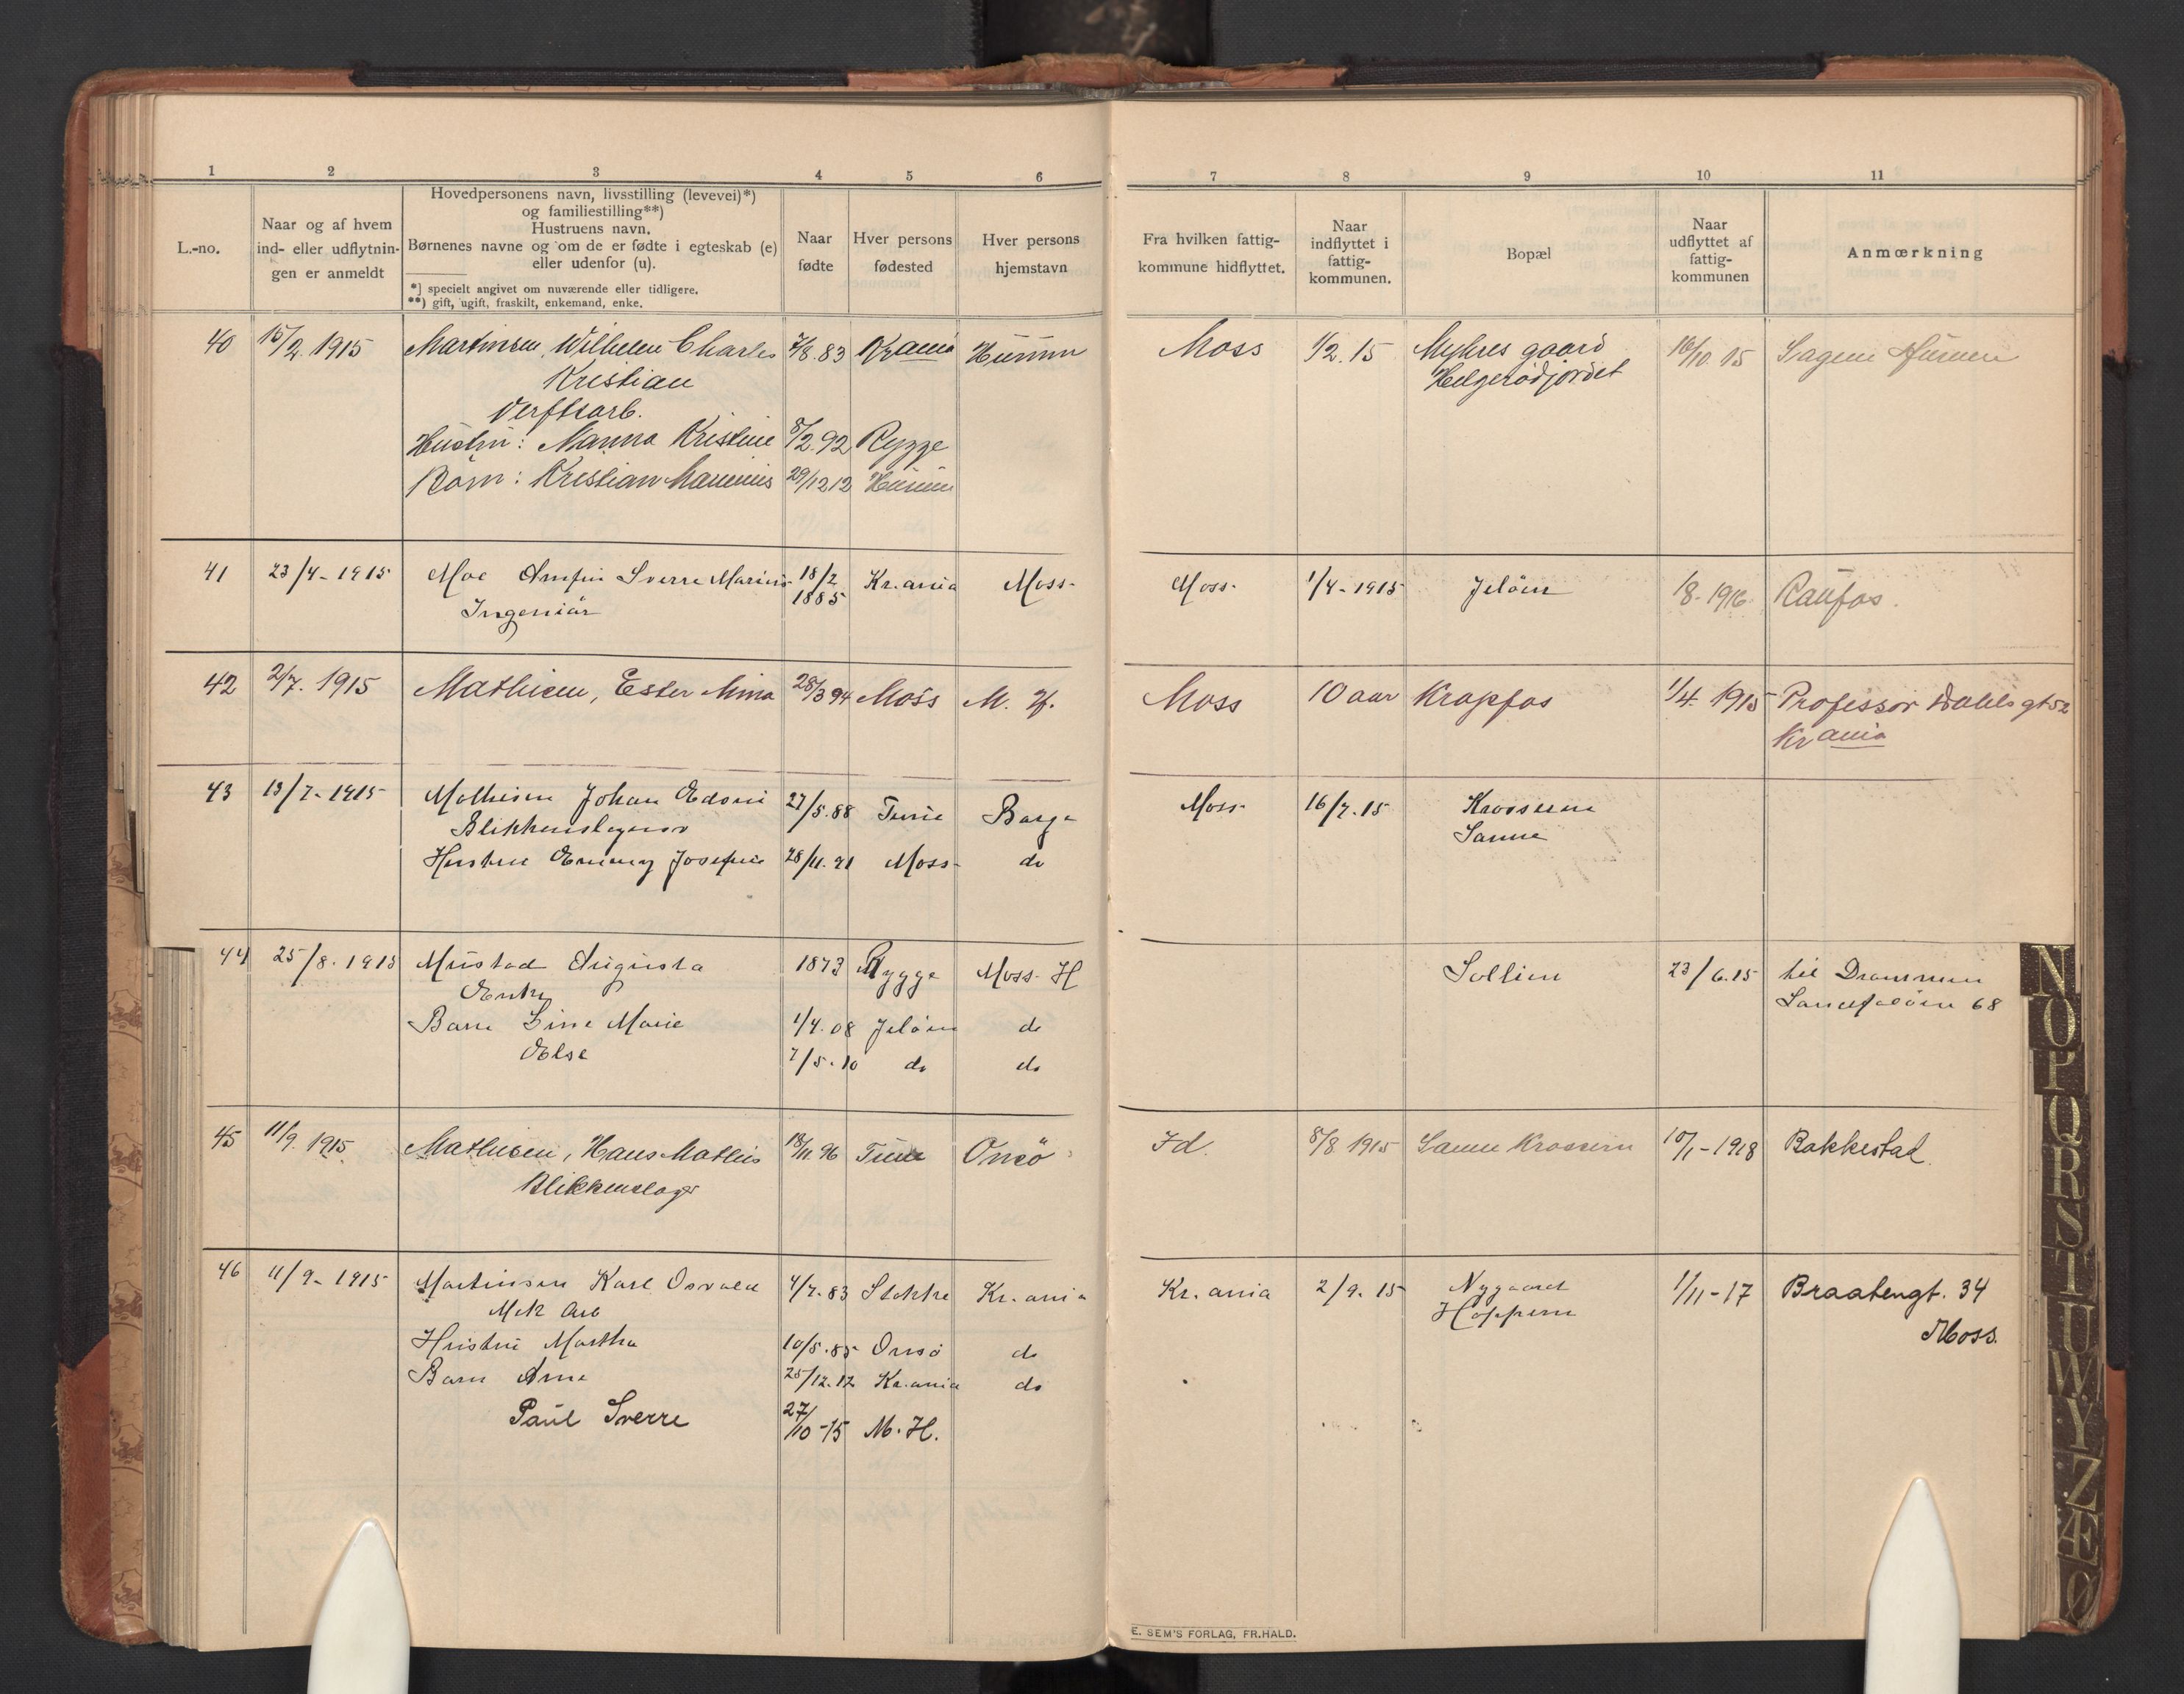 1 2 3 4 5 6 7 8 9 10 11
L.-no.
Naar og af hvem
ind- eller udflytnin-
gen er anmeldt
Hovedpersonens navn, livsstilling (levevei)*)
og familiestilling**)
Hustruens navn.
Børnenes navne og om de er fødte i egteskab (e)
eller udenfor (u).
*) specielt angivet om nuværende eller tidligere.
**) gift, ugift, fraskilt, enkemand, enke.
Naar
fødte
Hver persons
fødested
Hver persons
hjemstavn
Fra hvilken fattig-
kommune hidflyttet.
Naar
indflyttet i
fattig-
kommunen.
Bopæl
Naar
udflyttet af
fattig-
kommunen
Anmærkning
40 15/2. 1915 Martinsen, Wilhelm Charles 7/8.83 Krania Hurum Moss 1/2.15 Myhres gaard 16/10.15 Sagene Hurum
Kristian Helgerødjordet
Verftsarb.
Hustru: Nanna Kristine 8/2.92 Rygge
Barn: Kristian Marinius 29/12 12 Hurum
41 23/4-1915 Moe Arnfin Sverre Marius 18/2 1885 Kr.ania Moss Moss 1/4-1915 Jeløen 1/8-1916 Raufos.
Ingeniør
42 2/7. 1915 Mathisen, Ester Mina 28/3 94 Moss M. H. Moss 10 aar Krapfos 1/4. 1915 Professor Dahls gt 52
Krania
43 13/7-1915 Mathisen Johan Edvin 27/5.88 Tune Borge Moss 16/7.15 Krossern
Blikkenslager Sanne
Hustru Emmy Josefine 28/11.91 Moss do
44 25/8.1915 Mustad Augusta 1873 Rygge Moss H Sollien 23/6.15 til Drammen
Enke 68
Barn Line Marie 1/4.08 Jeløen do
Else 7/5.10 do do
45 11/9. 1915 Mathisen, Hans Mathis 18/11.96 Tune Onsö Id. 8/8 1915 Sanne Krossern 10/1-1918 Bakkestad.
Blikkenslager
46 11/9-1915 Martinsen Karl Osvald 4/7.83 Stokke Kr.ania Kr.ania 2/9.15 Nygaard 1/11-17 Braatengt. 34
Mek Arb Høppern Moss.
Hustru Martha 10/5.85 Onsö do
Barn Arne 25/12.12 Kr.ania do
Paul Sverre 27/10-15 M.H.
E. SEM'S FORLAG, FR.HALD.
N
O
P
Q
R
S
T
U
W
Y
Z
Æ
Ø